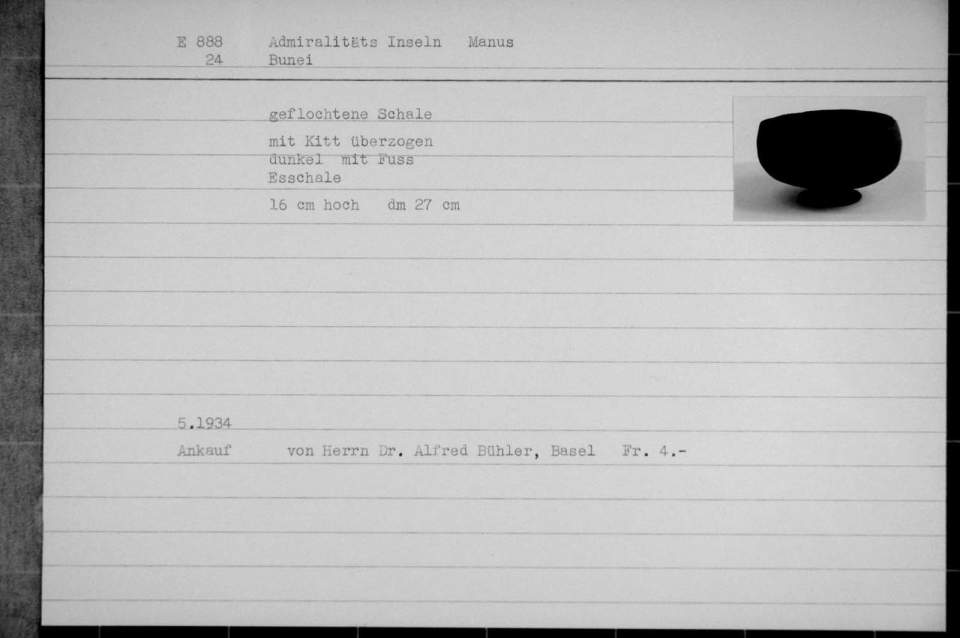 E 888 Admiralitäts Inseln Manus
24 Bunei
geflochtene Schale
mit Kitt überzogen
dunkel mit Fuss
Esschale
16 cm hoch dm 27 cm
5.1934
Ankauf von Herrn Dr. Alfred Bühler, Basel Fr. 4.-